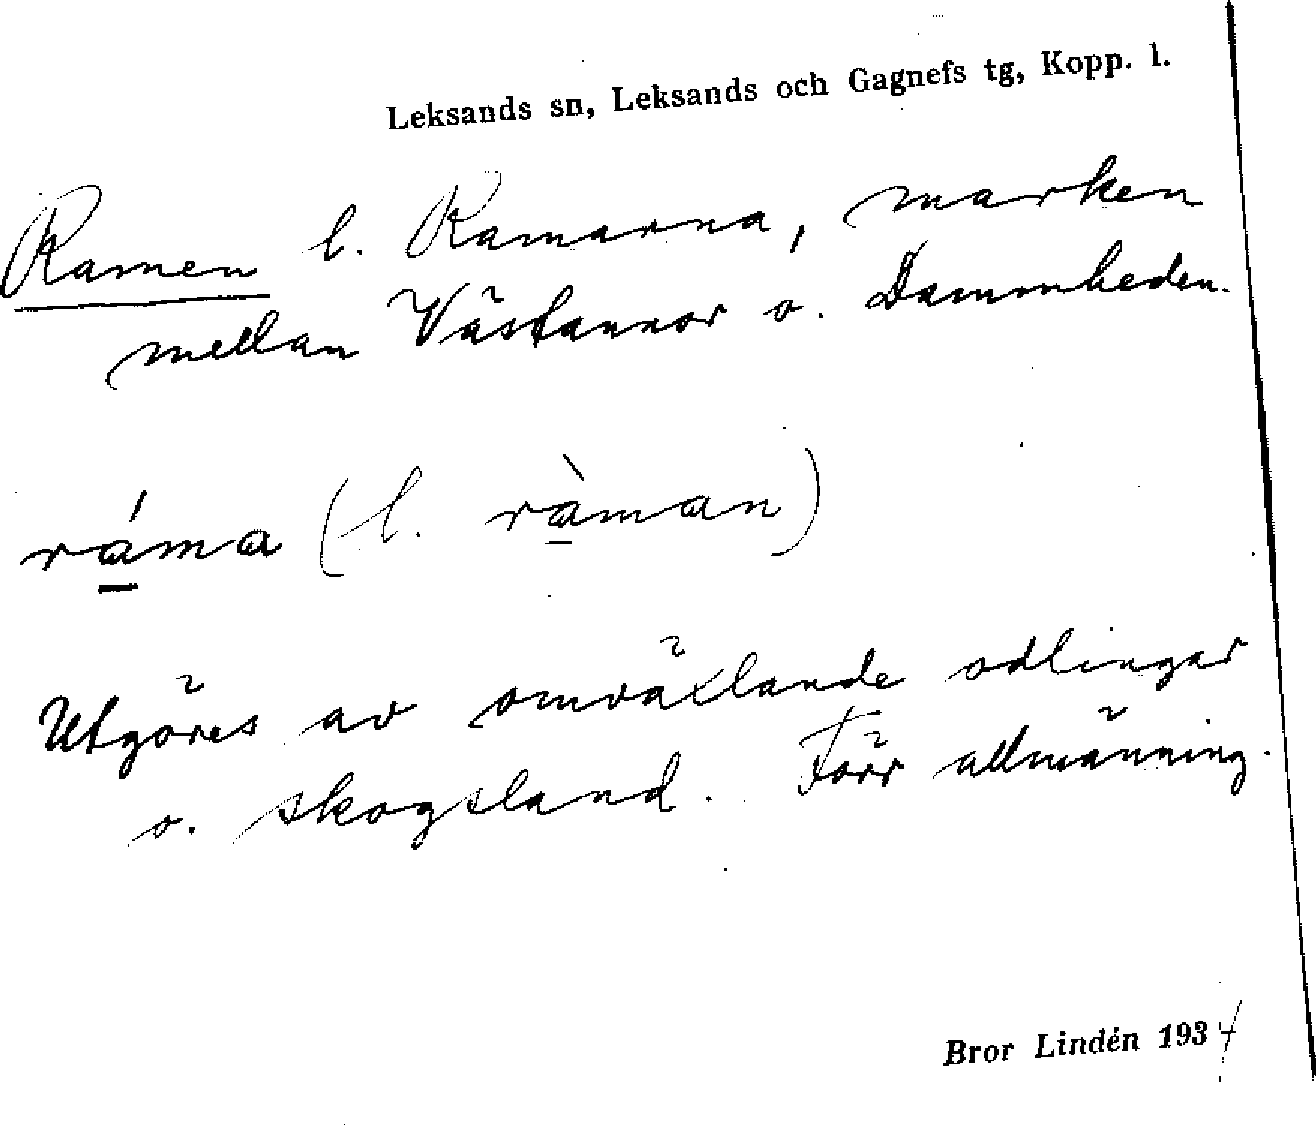 Leksands sn, Leksands och Gagnefs tg, Kopp. l.
Ramen l. Ramarna, marken
mellan Västannor o. Dammheden.
ráma (l. ràman)
Utgöres av omväxlande odlingar
o. skogsland. Förr allmänning.
Bror Lindén 1934